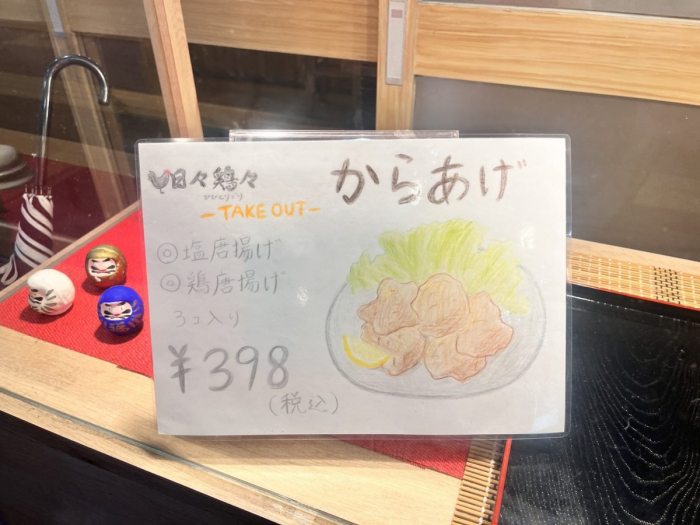 日々鶏々
- TAKE OUT -
からあげ
◎塩唐揚げ
◎鶏唐揚げ
3コ入り
¥398
(税込)